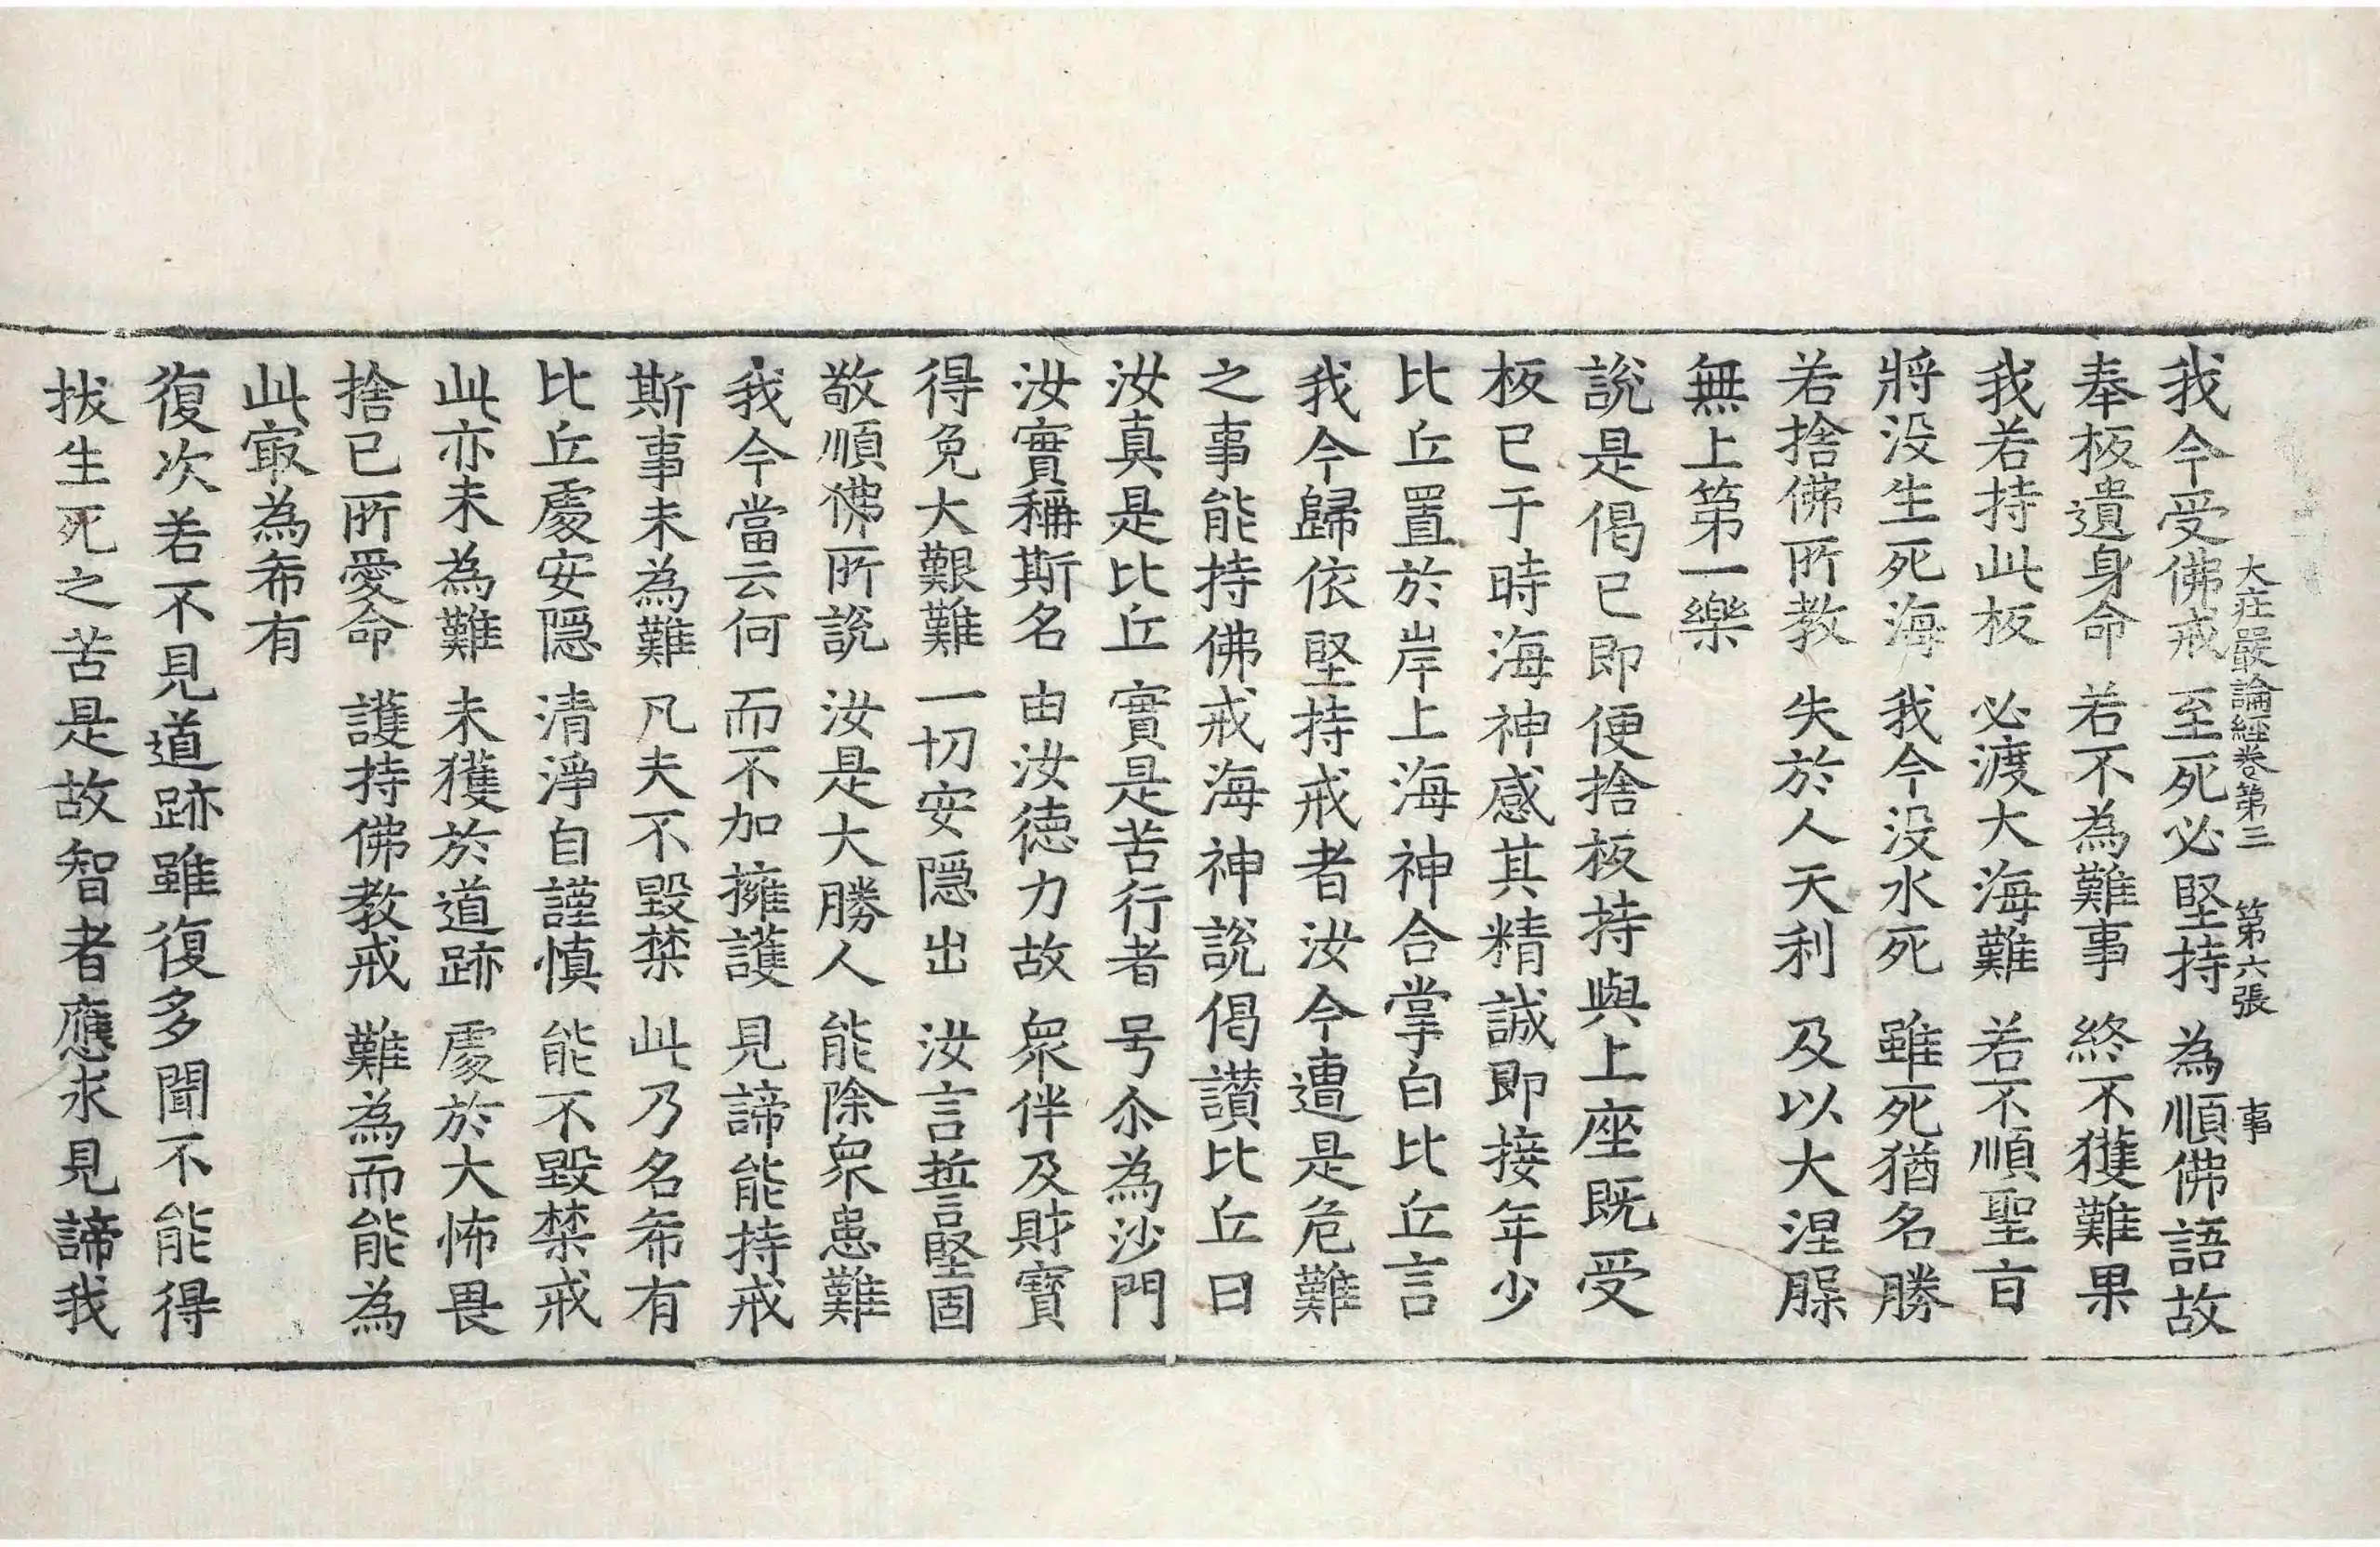 大庄嚴論經卷第三　第六張　事
我今受佛戒　至死必堅持　為順佛語故
奉板遺身命　若不為難事　終不獲難果
我若持此板　必渡大海難　若不順聖㫖
將没生死海　我今没水死　雖死猶名勝
若捨佛所教　失於人天利　及以大涅𦖠
無上第一樂
說是偈已即便捨板持與上座既受
板已于時海神感其精誠即接年少
比丘置於岸上海神合掌白比丘言
我今歸依堅持戒者汝今遭是危難
之事能持佛戒海神說偈讃比丘曰
汝真是比丘　實是苦行者　号尒為沙門
汝實稱斯名　由汝德力故　衆伴及財寳
得免大艱難　一切安隱出　汝言誓堅固
敬順佛所說　汝是大勝人　能除衆患難
我今當云何　而不加擁護　見諦能持戒
斯事未為難　凡夫不毀禁　此乃名希有
比丘處安隱　清淨自謹慎　能不毀禁戒
此亦未為難　未獲於道跡　處於大怖畏
捨已所愛命　護持佛教戒　難為而能為
此冣為希有
復次若不見道跡雖復多聞不能得
拔生死之苦是故智者應求見諦我